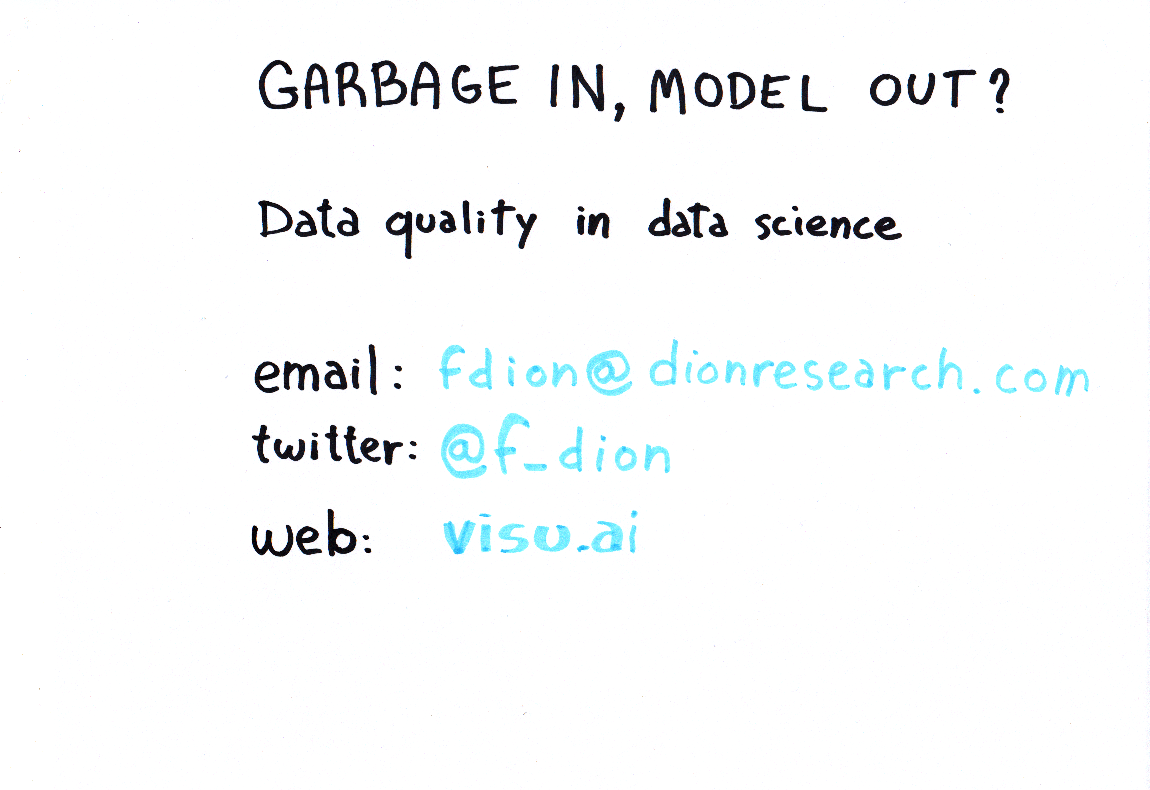 GARBAGE IN, MODEL OUT?
Data quality in data science
email: fdion@dionresearch.com
twitter: @f_dion
web: visu.ai